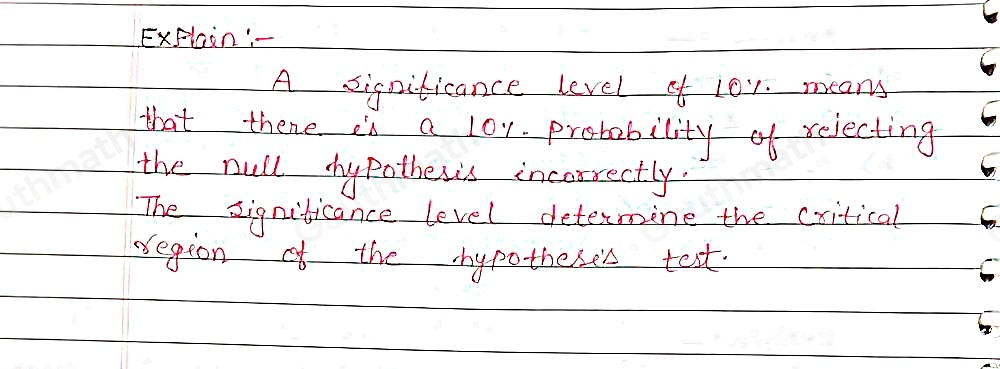 Explain :-
A significance level of 10% means
that there is a 10% probability of rejecting
the null hypothesis incorrectly.
The significance level determine the critical
region of the hypothesis test.